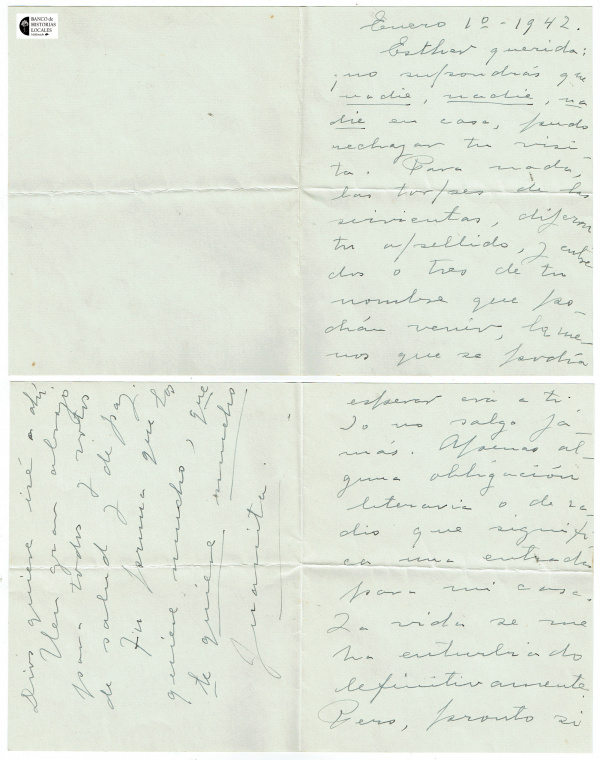 BANCO de
HISTORIAS
LOCALES
Enero 1º - 1942.
Esther querida:
¡no supondrás que
nadie, nadie, na
die en casa, pudo
rechazar tu visi-
ta. Para nada,
las torpes de las
sirvientas, dijeron
tu apellido, y entre
dos o tres de tu
nombre que po-
dían venir, la me-
nos que se podía
esperar era a ti.
Yo no salgo ja-
más. Apenas al-
guna obligación
literaria o de ra-
dio que signifi
ca una entrada
para mi casa.
La vida se me
ha enturbiado
definitivamente.
Pero, pronto si
Dios quiere iré a ahí
Un gran abrazo
para todos y votos
de salud y de paz.
Tu prima que los
quiere mucho, que
te quiere mucho.
Juanita.